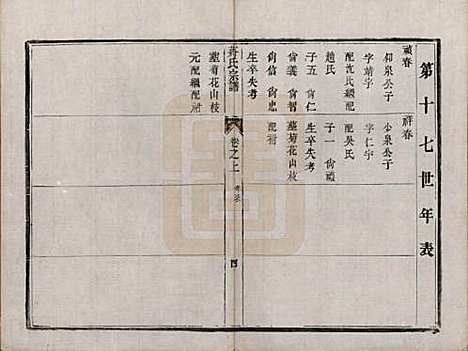 第十七世年表
禎春
仰泉公子
字靖宇
配沈氏繼配
趙氏
子五 尙仁
尙義 尙智
尙信 尙忠
生卒失考
墓菊花山枝
元配繼配祔
祥春
少泉公子
字仁宇
配吳氏
子一 尙禮
生卒失考
墓菊花山枝
配祔
蔣氏宗譜
卷之上
四